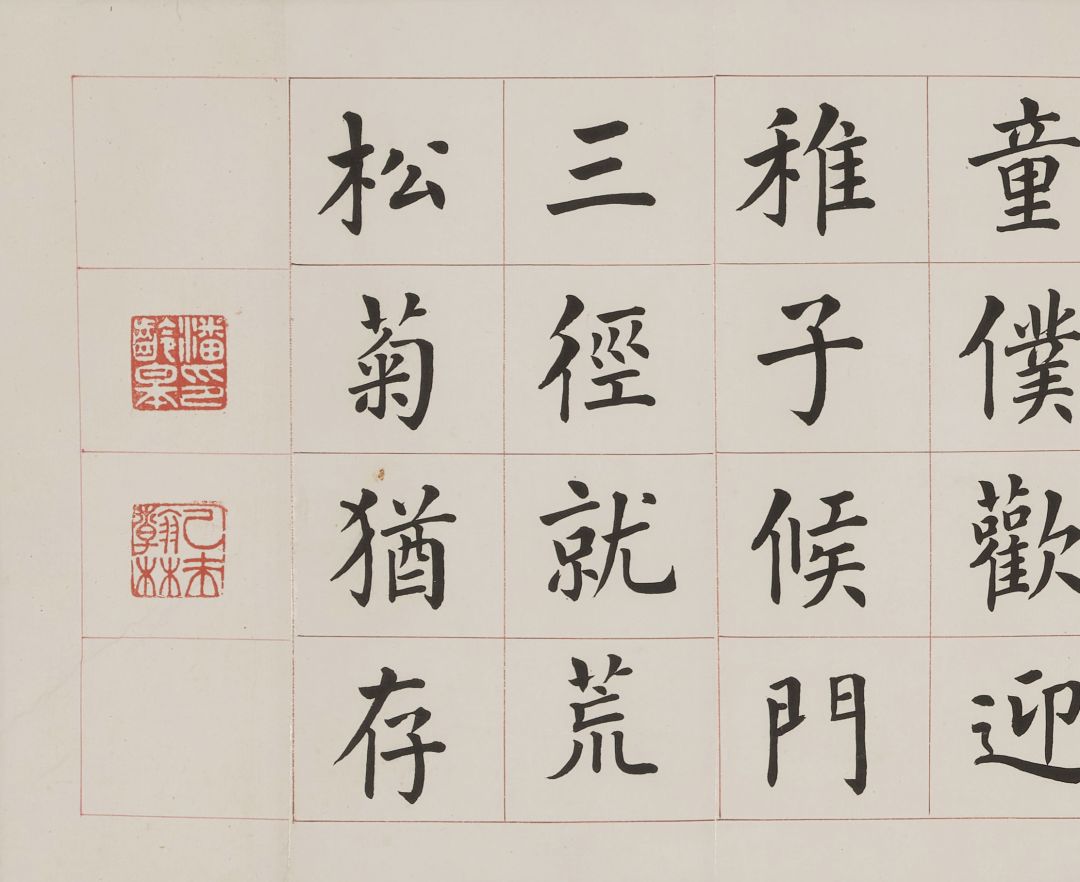 童僕歡迎
稚子候門
三徑就荒
松菊猶存
潘印齡皋
乙未翰林